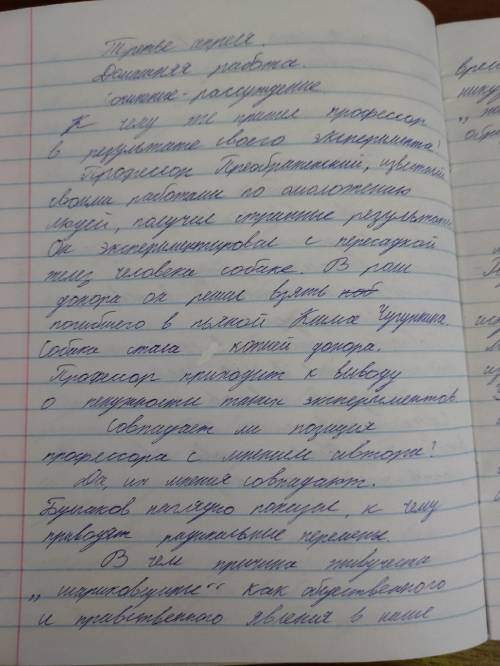 Третье апреля.
Домашняя работа.
Сочинение-рассуждение
К чему же пришёл профессор
в результате своего эксперимента?
Профессор Преображенский, известный
своими работами по омоложению
людей, получил странные результаты.
Он экспериментировал с пересадкой
желез человека собаке. В роли
донора он решил взять
погибшего в пьяной Клима Чугункина.
Собака стала копией донора.
Профессор приходит к выводу
о ненужности таких экспериментов
Совпадает ли позиция
профессора с мнением автора?
Да, их мнения совпадают.
Булгаков наглядно показал, к чему
приводят радикальные перемены.
В чём причина живучести
„шариковщины“ как общественного
и нравственного явления в наше
врем
нику
обр